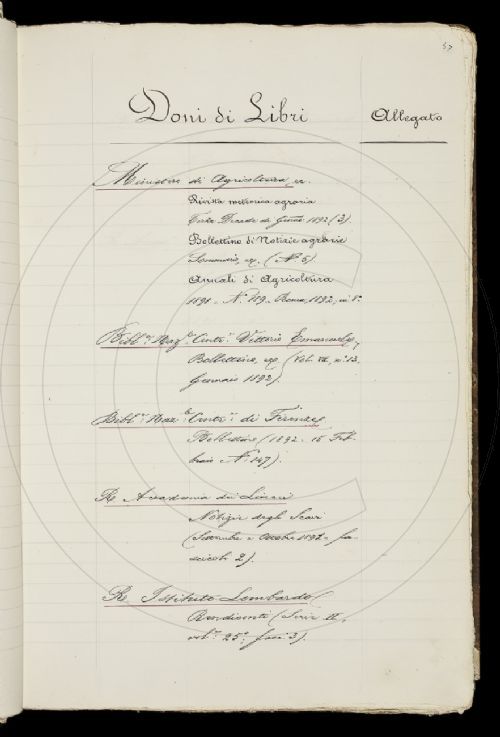 57
Doni di Libri
Allegato
Ministero di Agricoltura, ec.
Rivista meteorica agraria
Terza Decade di Genn. 1892 (3).
Bollettino di Notizie agrarie
Sommario, ec. (N° 5)
Annali di Agricoltura
1891 - N. 189 - Roma, 1892, in 8°
Bibl.a Naz.e Centr.e Vittorio Emanuele,
Bollettino, ec. (Vol. VII, n° 13.
Gennaio 1892).
Bibl.a Naz.e Centr.e di Firenze
Bollettino (1892. 15 Feb-
braio N° 147).
R. Accademia dei Lincei
Notizie degli Scavi
(Settembre e Ottobre 1892 - fa-
scicoli 2).
R. Istituto Lombardo
Rendiconti (Serie II,
vol.e 25°, fasc. 3).